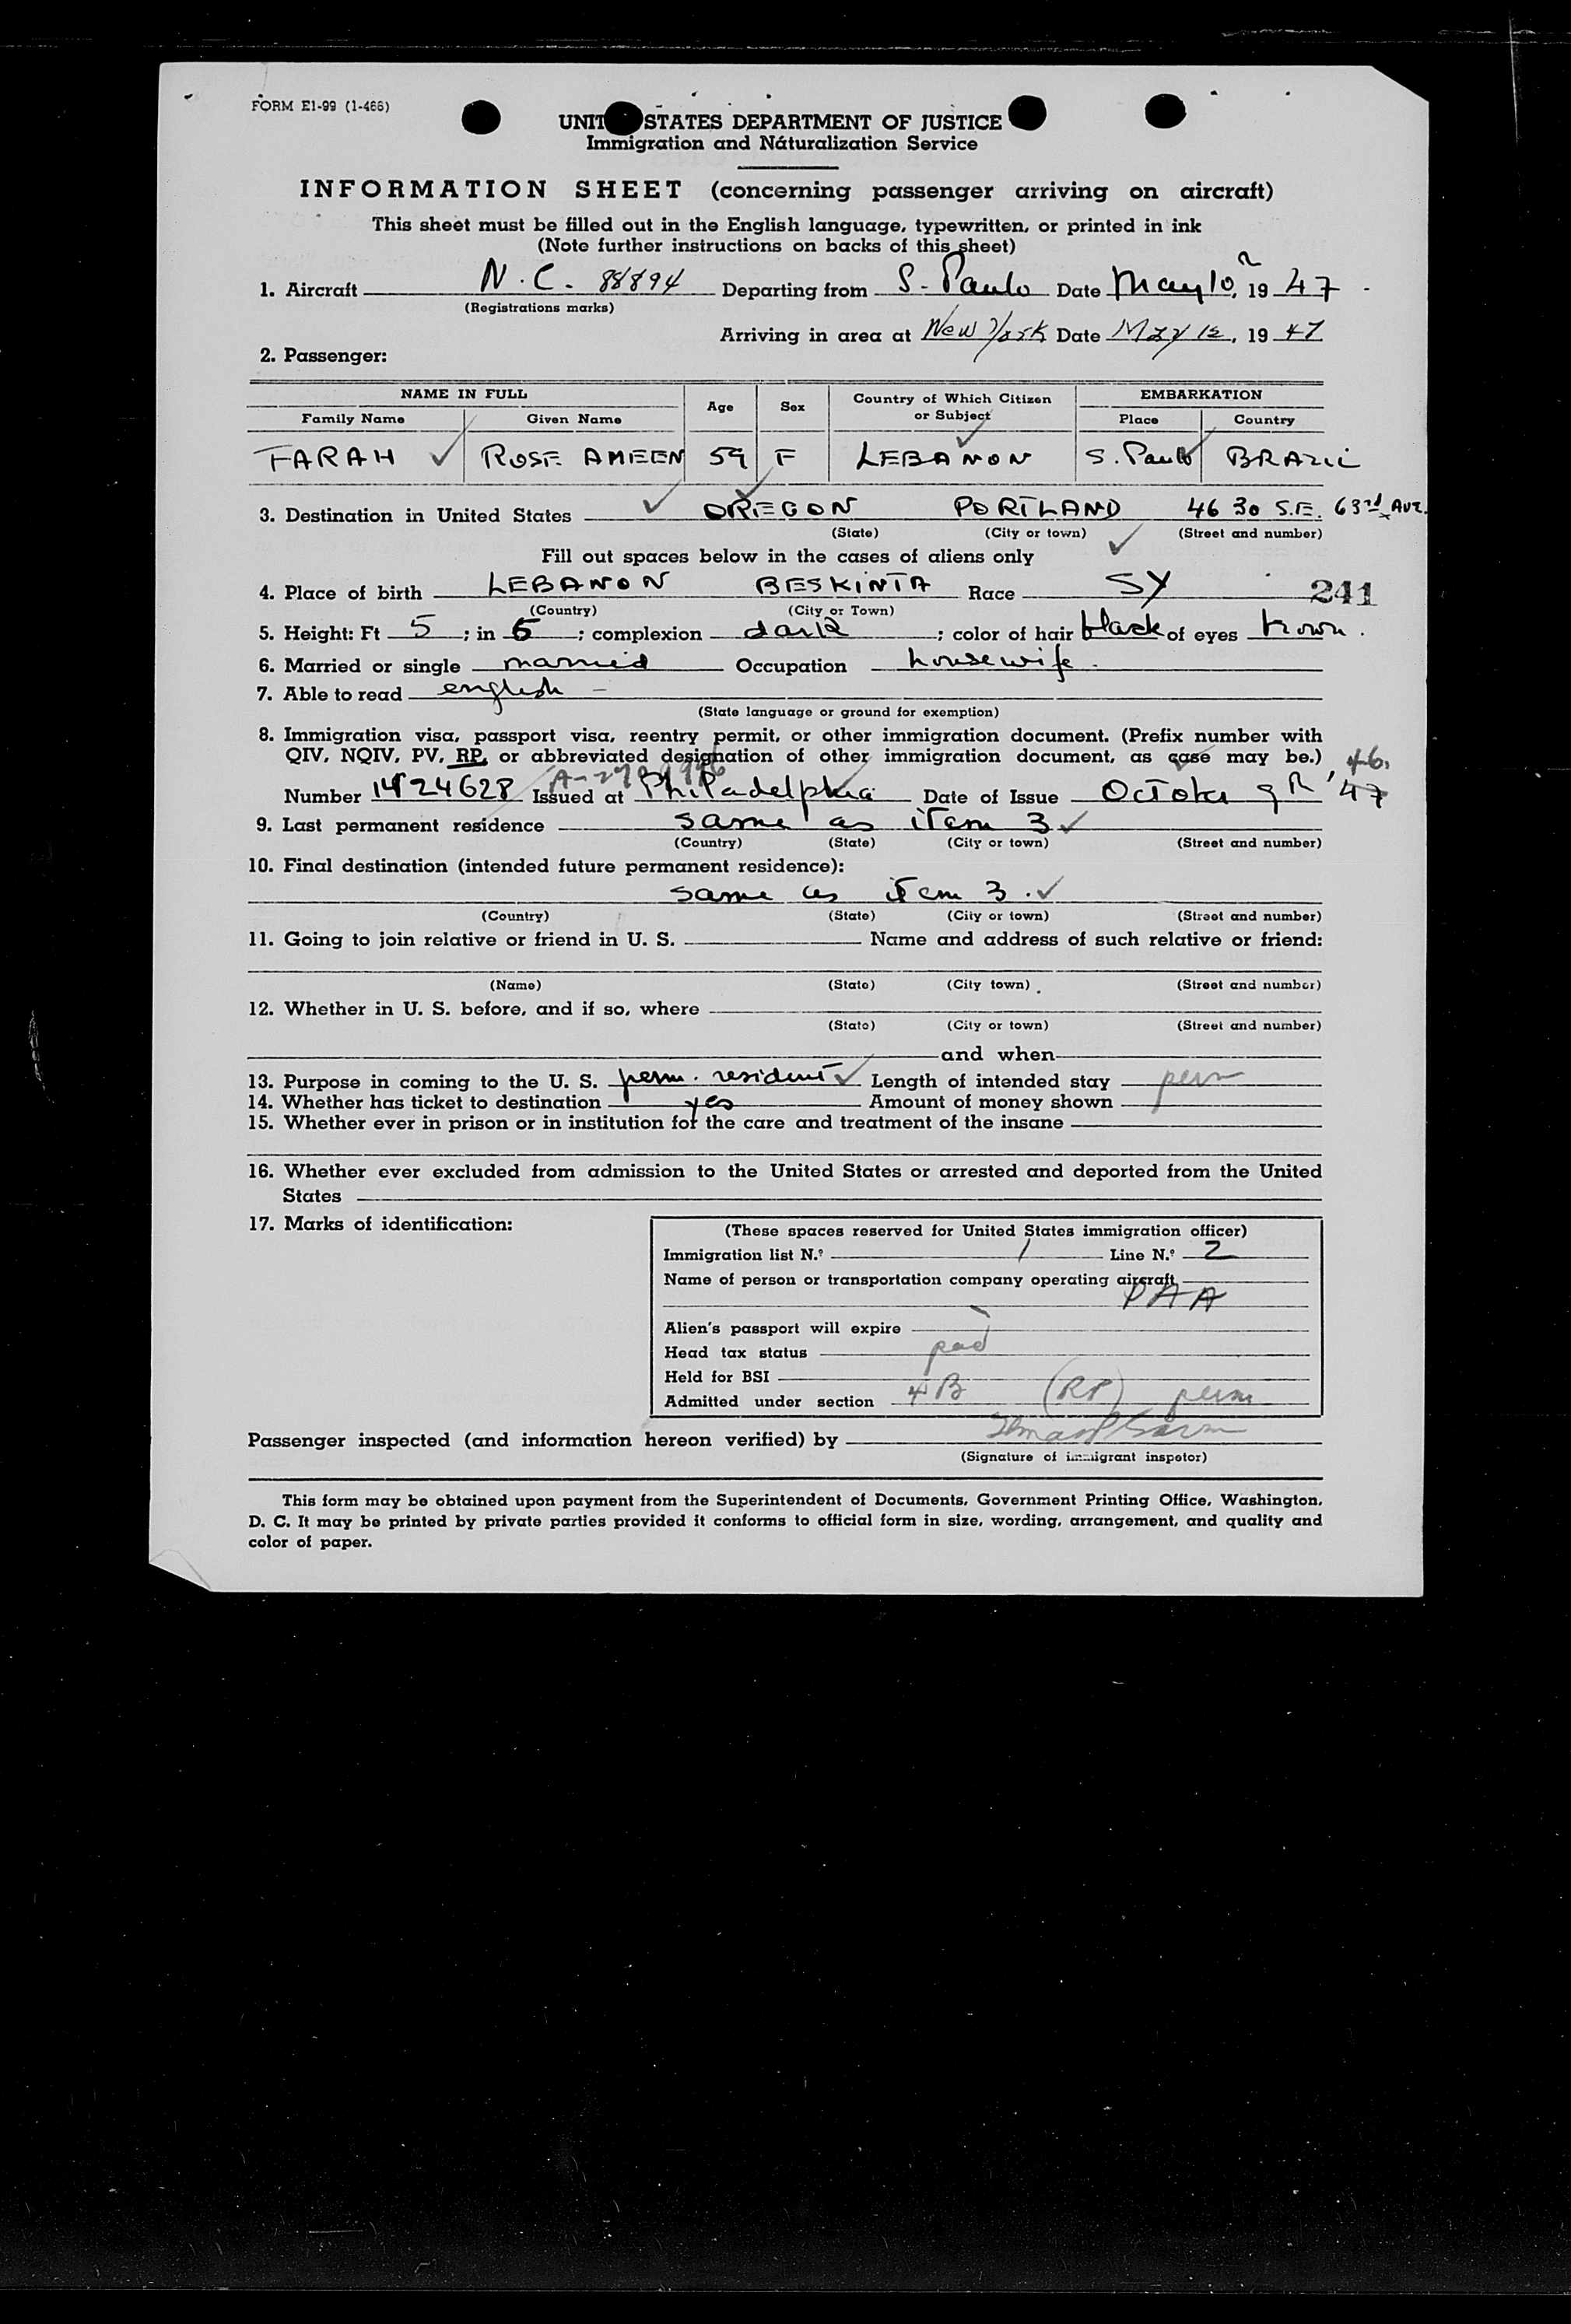 FORM E1-99 (1-466)
UNIT STATES DEPARTMENT OF JUSTICE
Immigration and Naturalization Service
INFORMATION SHEET (concerning passenger arriving on aircraft)
This sheet must be filled out in the English language, typewritten, or printed in ink
(Note further instructions on backs of this sheet)
1. Aircraft N.C. 88894 Departing from S. Paulo Date May 10, 1947
(Registrations marks)
Arriving in area at New York Date May 12, 1947
2. Passenger:
NAME IN FULL Age Sex Country of Which Citizen or Subject EMBARKATION
Family Name Given Name Place Country
FARAH ROSE AMEEN 59 F LEBANON S. Paulo BRAZIL
3. Destination in United States OREGON PORTLAND 4630 S.E. 63rd Ave.
(State) (City or town) (Street and number)
Fill out spaces below in the cases of aliens only
4. Place of birth LEBANON BESKINTA Race SY 241
(Country) (City or Town)
5. Height: Ft 5; in 5; complexion dark; color of hair black of eyes brown.
6. Married or single married Occupation housewife.
7. Able to read english -
(State language or ground for exemption)
8. Immigration visa, passport visa, reentry permit, or other immigration document. (Prefix number with
QIV, NQIV, PV, RP, or abbreviated designation of other immigration document, as case may be.) 46.
Number 1424628 Issued at Philadelphia Date of Issue October 9 '47
9. Last permanent residence same as item 3
(Country) (State) (City or town) (Street and number)
10. Final destination (intended future permanent residence):
same as item 3.
(Country) (State) (City or town) (Street and number)
11. Going to join relative or friend in U. S. Name and address of such relative or friend:
(Name) (State) (City town) (Street and number)
12. Whether in U. S. before, and if so, where
(State) (City or town) (Street and number)
and when
13. Purpose in coming to the U. S. perm. resident Length of intended stay perm
14. Whether has ticket to destination yes Amount of money shown
15. Whether ever in prison or in institution for the care and treatment of the insane
16. Whether ever excluded from admission to the United States or arrested and deported from the United
States
17. Marks of identification:
(These spaces reserved for United States immigration officer)
Immigration list N.º 1 Line N.º 2
Name of person or transportation company operating aircraft
PAA
Alien's passport will expire
Head tax status paid
Held for BSI
Admitted under section 4B (RP) perm
Passenger inspected (and information hereon verified) by
(Signature of immigrant inspetor)
This form may be obtained upon payment from the Superintendent of Documents, Government Printing Office, Washington,
D. C. It may be printed by private parties provided it conforms to official form in size, wording, arrangement, and quality and
color of paper.